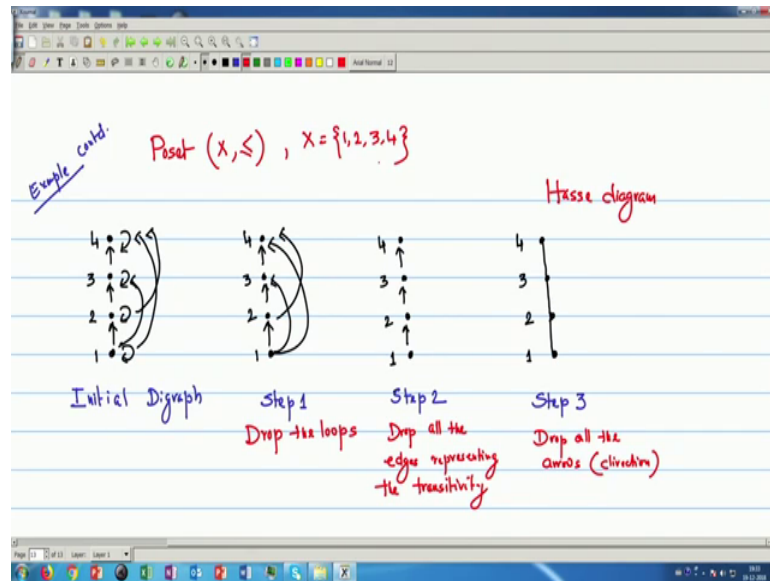 File Edit View Page Tools Options Help
Arial Normal 12
Example contd.
Poset (X, ≤) , X = {1, 2, 3, 4}
Hasse diagram
4 4 4 4
3 3 3 3
2 2 2 2
1 1 1 1
Initial Digraph
Step 1
Drop the loops
Step 2
Drop all the
edges representing
the transitivity
Step 3
Drop all the
arrows (direction)
Page 13 of 13 Layer: Layer 1